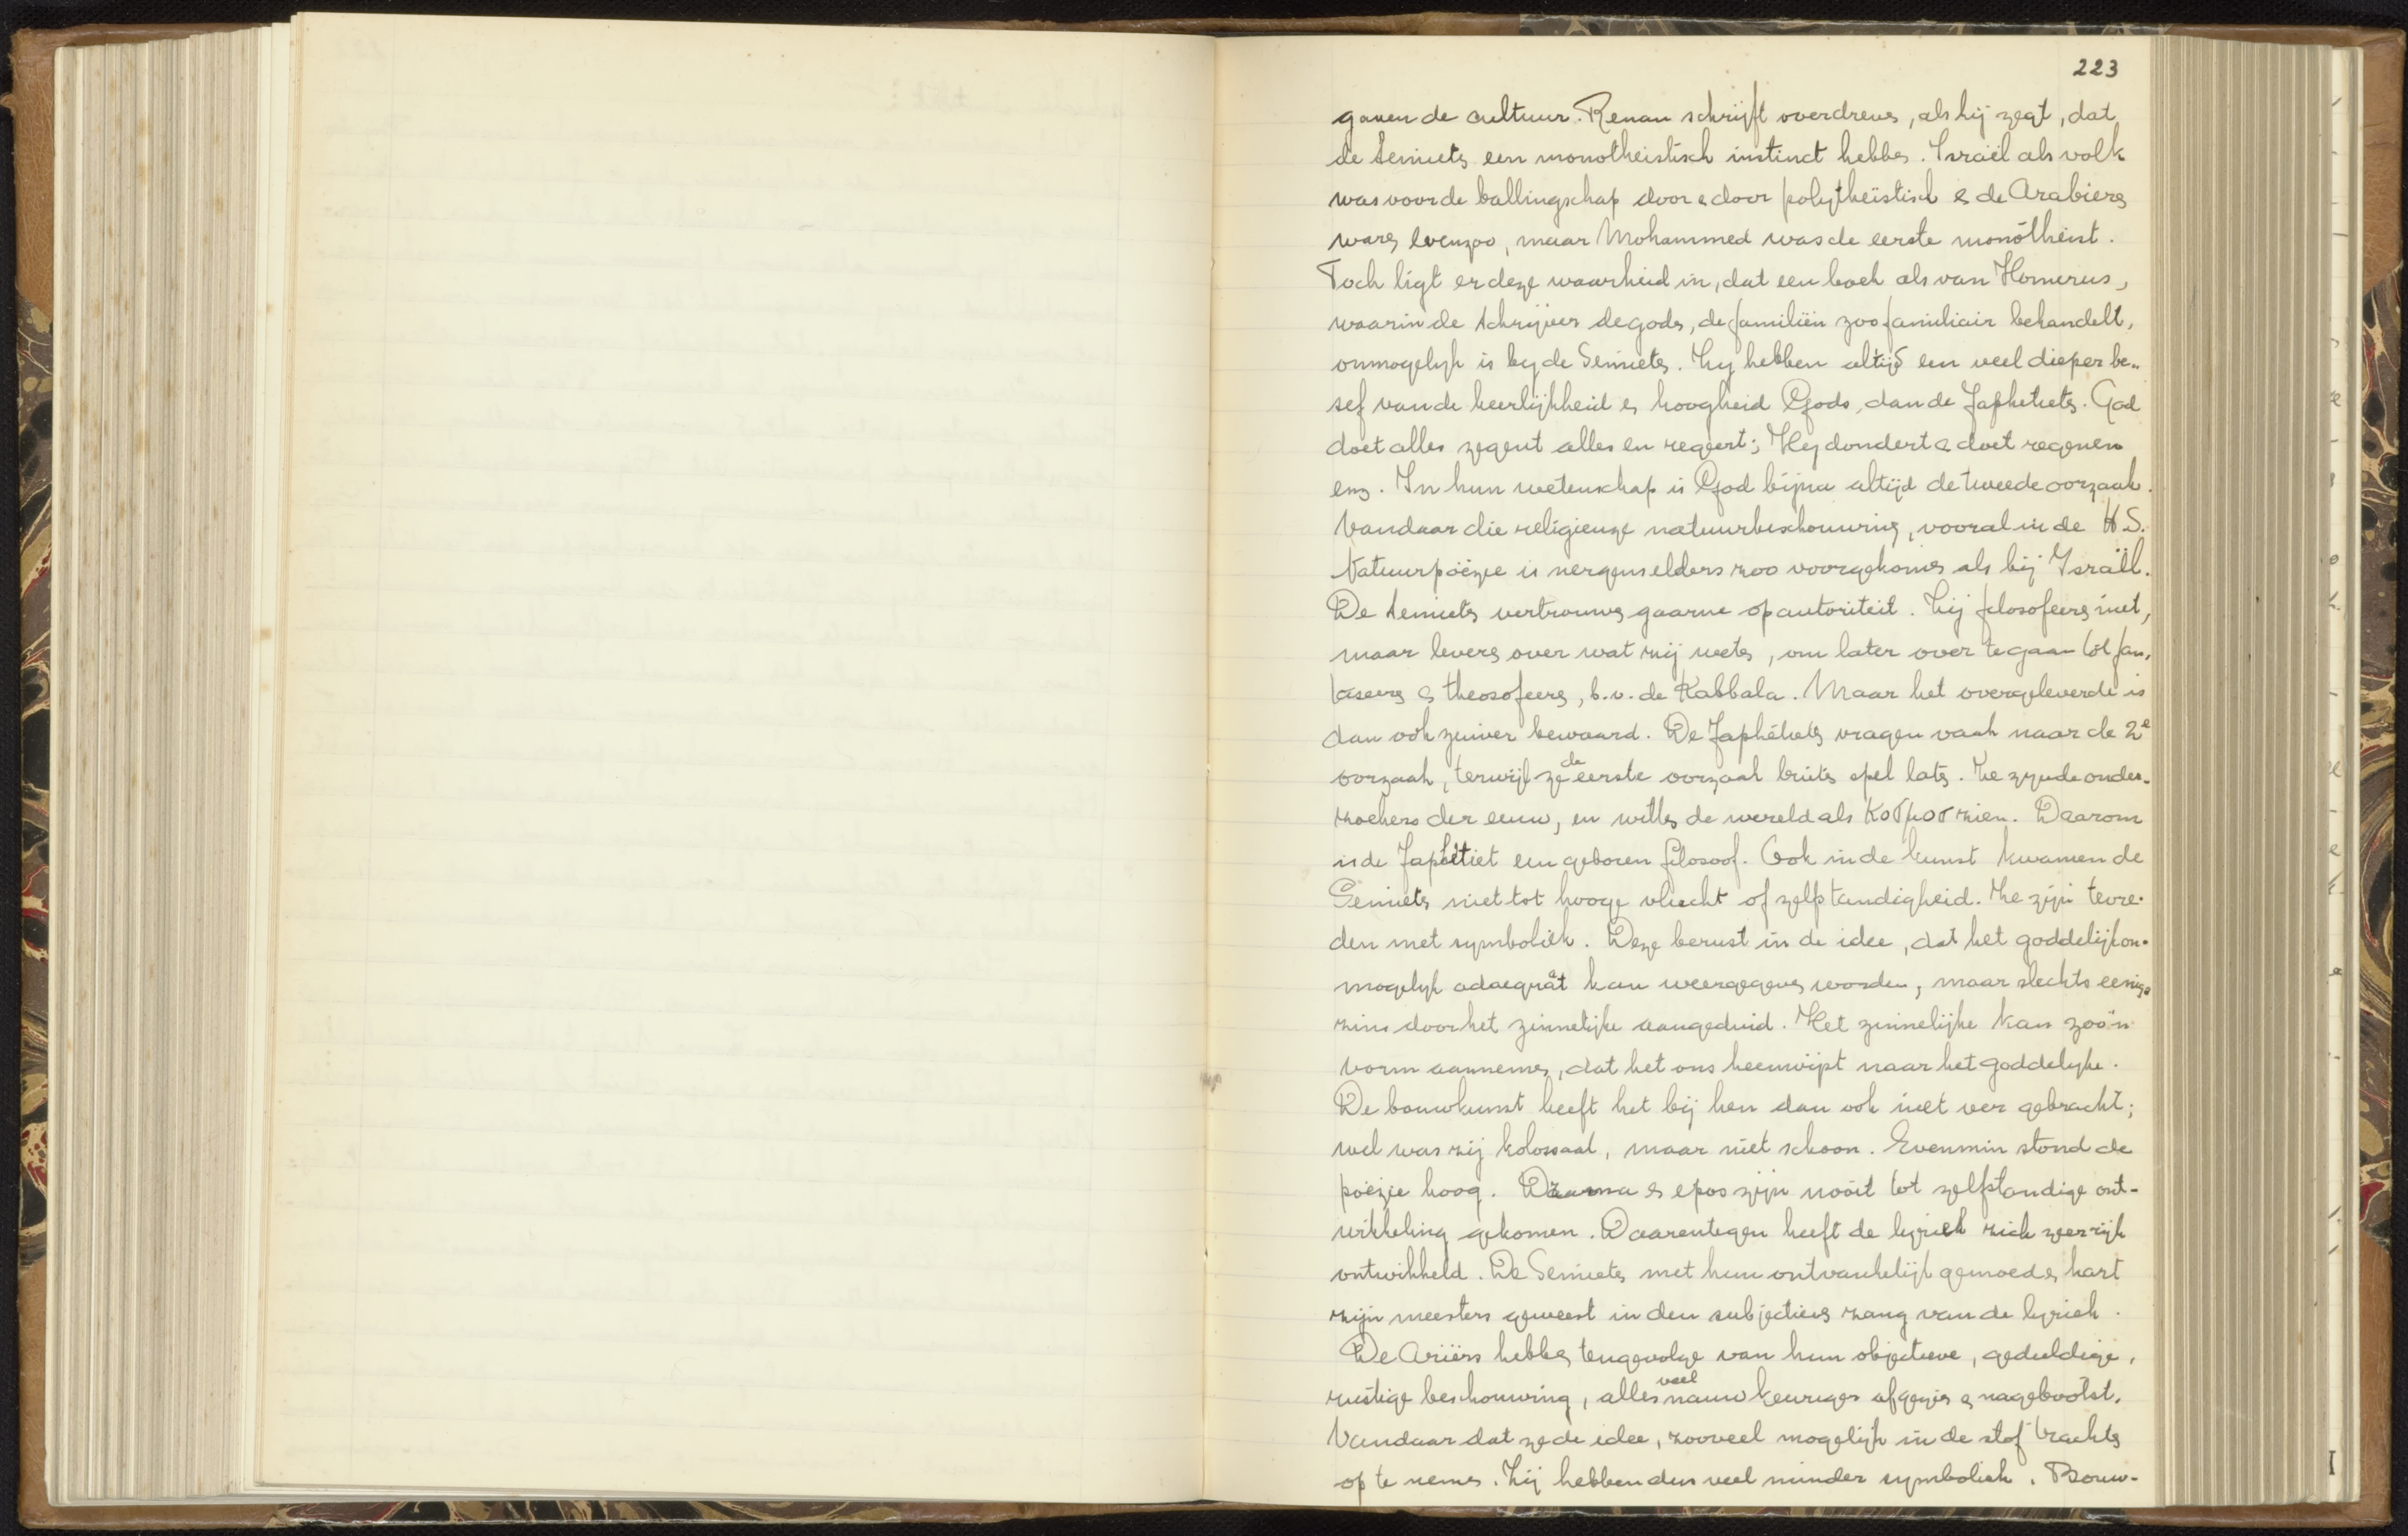 223
gaven de cultuur. Renan schrijft overdreven, als hij zegt, dat
de Semieten een monotheistisch instinct hebben. Israël als volk
was voor de ballingschap door & door polytheïstisch & de Arabieren
waren evenzoo, maar Mohammed was de eerste monotheist.
Toch ligt er deze waarheid in, dat een boek als van Homerus,
waarin de schrijver de goden, de familiën zoo familiair behandelt,
onmogelijk is bij de Semieten. Zij hebben altijd een veel dieper be-
sef van de heerlijkheid en hoogheid Gods, dan de Japhetieten. God
doet alles zegent alles en regeert; Hij dondert & doet regenen
enz. In hun wetenschap is God bijna altijd de tweede oorzaak.
Vandaar die religieuze natuurbeschouwing, vooral in de H.S.
Natuurpoëzie is nergens elders zoo voorgekomen als bij Israël.
De Semieten vertrouwen gaarne op autoriteit. Zij filosofeeren niet,
maar leveren over wat zij weten, om later over te gaan tot fan-
taseeren & theosofeeren, b.v. de Kabbala. Maar het overgeleverde is
dan ook zuiver bewaard. De Japhétieten vragen vaak naar de 2e
oorzaak, terwijl ze de eerste oorzaak buiten spel laten. Ze zijn de onder-
zoekers der eeuw, en willen de wereld als κοσμοσ zien. Daarom
is de Japhétiet een geboren filosoof. Ook in de kunst kwamen de
Semieten niet tot hooge vlucht of zelfstandigheid. Ze zijn tevre-
den met symboliek. Deze berust in de idee, dat het goddelijk on-
mogelijk adaequaat kan weergegeven worden, maar slechts eenigs-
zins door het zinnelijke aangeduid. Het zinnelijke kan zoo'n
vorm aannemen, dat het ons heenwijst naar het goddelijke.
De bouwkunst heeft het bij hen dan ook niet ver gebracht;
wel was zij kolossaal, maar niet schoon. Evenmin stond de
poëzie hoog. Drama & epos zijn nooit tot zelfstandige ont-
wikkeling gekomen. Daarentegen heeft de lyriek zich zeer rijk
ontwikkeld. De Semieten met hun ontvankelijk gemoed en hart
zijn meesters geweest in den subjectieven zang van de lyriek.
De Ariërs hebben tengevolge van hun objectieve, geduldige,
rustige beschouwing, alles veel nauwkeuriger afgezien & nagebootst.
Vandaar dat ze de idee, zooveel mogelijk in de stof trachten
op te nemen. Zij hebben dus veel minder symboliek. Bouw-